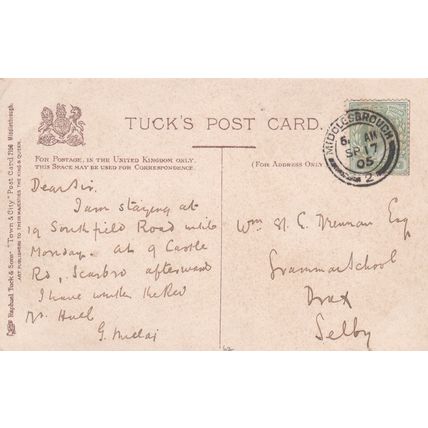 TUCK'S POST CARD.
FOR POSTAGE, IN THE UNITED KINGDOM ONLY,
THIS SPACE MAY BE USED FOR CORRESPONDENCE.
(FOR ADDRESS ONLY.)
Raphael Tuck & Sons' "Town & City" Post Card 7196 Middlesbrough.
ART PUBLISHERS TO THEIR MAJESTIES THE KING & QUEEN.
MIDDLESBROUGH
AM
SP 17
05
2
Dear Sir.
I am staying at
19 Southfield Road until
Monday. At 9 Castle
Rd, Scarbro afterwards
I have written the Rev
Hull
G.
Wm St. C. Drennan Esq
Grammar School
Drax
Selby